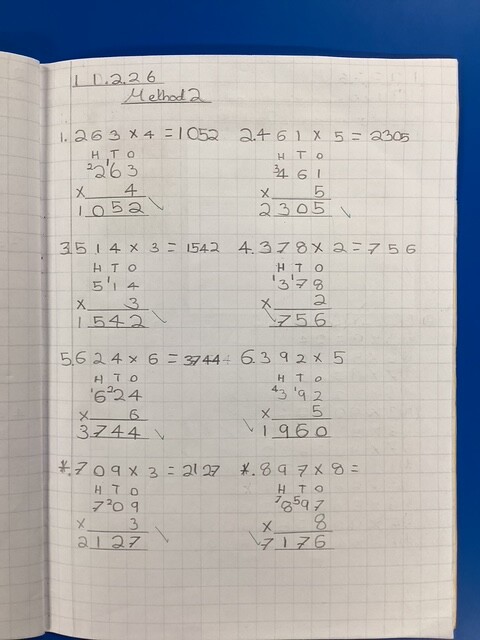 11.2.26
Method 2
1. 263 × 4 = 1052
H T O
²2¹63
× 4
1052 ✓
2. 461 × 5 = 2305
H T O
³461
× 5
2305 ✓
3. 514 × 3 = 1542
H T O
5¹14
× 3
1542 ✓
4. 378 × 2 = 756
H T O
¹3¹78
× 2
756 ✓
5. 624 × 6 = 3744
H T O
¹6²24
× 6
3744 ✓
6. 392 × 5
H T O
⁴3¹92
× 5
1960 ✓
*. 709 × 3 = 2127
H T O
7²09
× 3
2127 ✓
*. 897 × 8 =
H T O
⁷8⁵97
× 8
7176 ✓